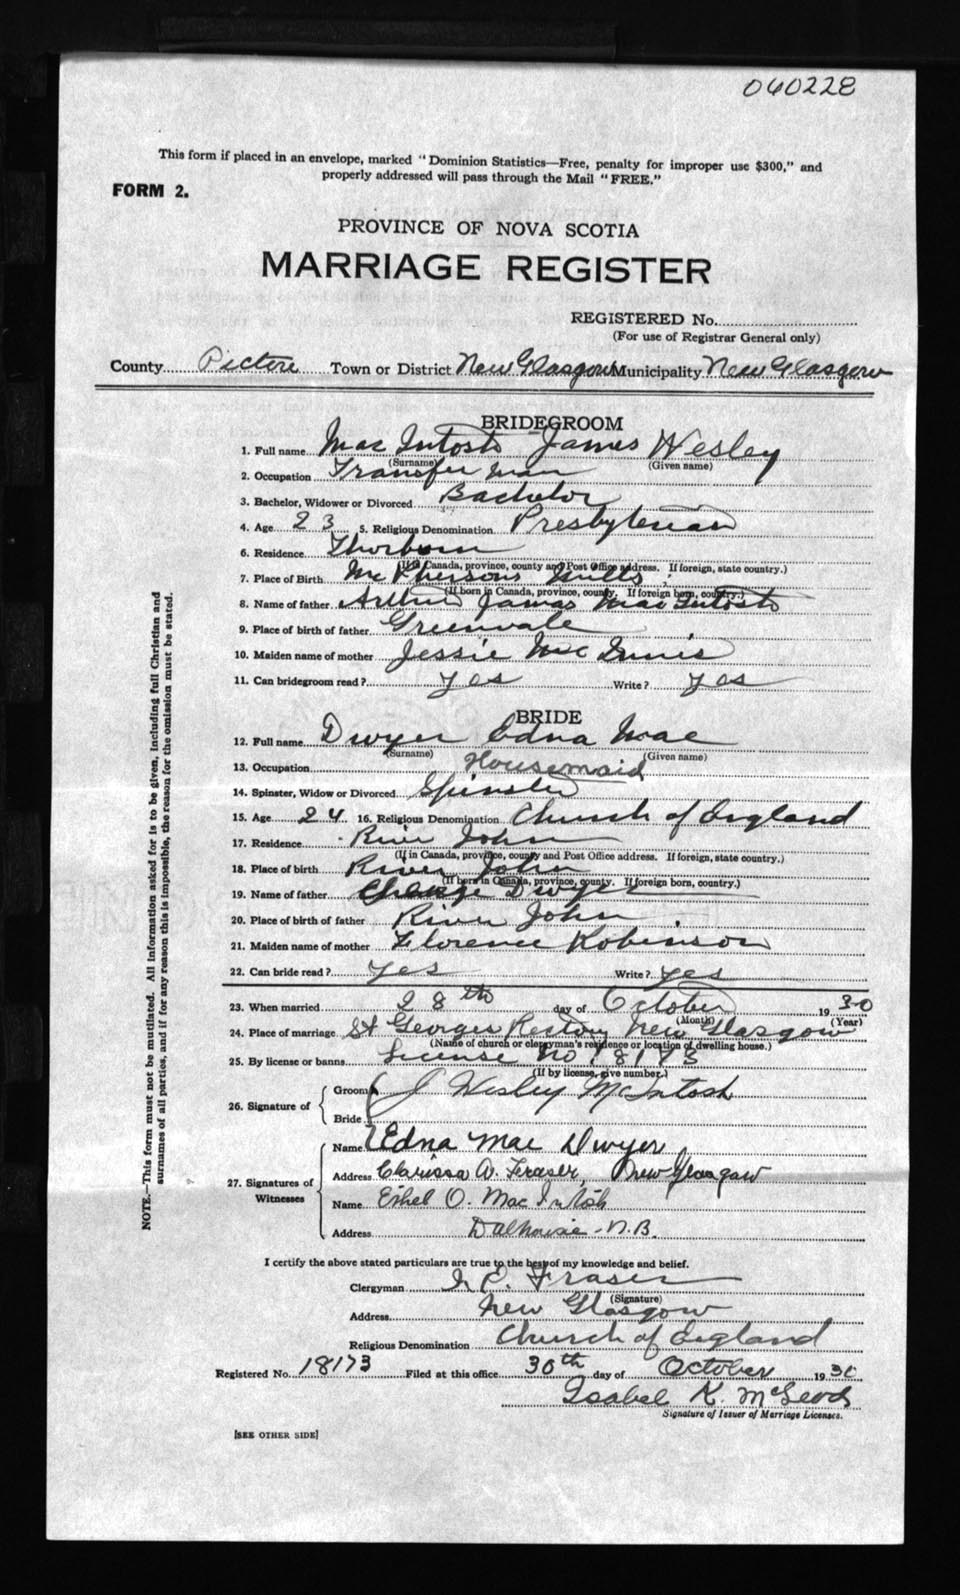 060228
This form if placed in an envelope, marked "Dominion Statistics—Free, penalty for improper use $300," and
properly addressed will pass through the Mail "FREE."
FORM 2.
PROVINCE OF NOVA SCOTIA
MARRIAGE REGISTER
REGISTERED No.
(For use of Registrar General only)
County Pictou Town or District New Glasgow Municipality New Glasgow
BRIDEGROOM
1. Full name Mac Intosh James Wesley
(Surname) (Given name)
2. Occupation Transfer man
3. Bachelor, Widower or Divorced Bachelor
4. Age 23 5. Religious Denomination Presbyterian
6. Residence Thorburn
(If in Canada, province, county and Post Office address. If foreign, state country.)
7. Place of Birth McPhersons Mills
(If born in Canada, province, county. If foreign born, country.)
8. Name of father Arthur James MacIntosh
9. Place of birth of father Greenvale
10. Maiden name of mother Jessie Mac Innis
11. Can bridegroom read? yes Write? yes
BRIDE
12. Full name Dwyer Edna Mae
(Surname) (Given name)
13. Occupation Housemaid
14. Spinster, Widow or Divorced Spinster
15. Age 24 16. Religious Denomination Church of England
17. Residence River John
(If in Canada, province, county and Post Office address. If foreign, state country.)
18. Place of birth River John
(If born in Canada, province, county. If foreign born, country.)
19. Name of father Dwyer
20. Place of birth of father River John
21. Maiden name of mother Florence Robinson
22. Can bride read? yes Write? yes
23. When married 28th day of October 1930
(Month) (Year)
24. Place of marriage St Georges Rectory New Glasgow
(Name of church or clergyman's residence or location of dwelling house.)
25. By license or banns License No 18173
(If by license, give number.)
26. Signature of Groom J Wesley McIntosh
Bride Edna Mae Dwyer
27. Signatures of Witnesses
Name
Address Clarissa A. Fraser, New Glasgow
Name Ethel O. MacIntosh
Address Dalhousie - N.B.
I certify the above stated particulars are true to the best of my knowledge and belief.
Clergyman Fraser
(Signature)
Address New Glasgow
Religious Denomination Church of England
Registered No. 18173 Filed at this office 30th day of October 1930
Isabel K. McLeod
Signature of Issuer of Marriage Licenses.
[SEE OTHER SIDE]
NOTE.—This form must not be mutilated. All information asked for is to be given, including full Christian and
surnames of all parties, and if for any reason this is impossible, the reason for the omission must be stated.